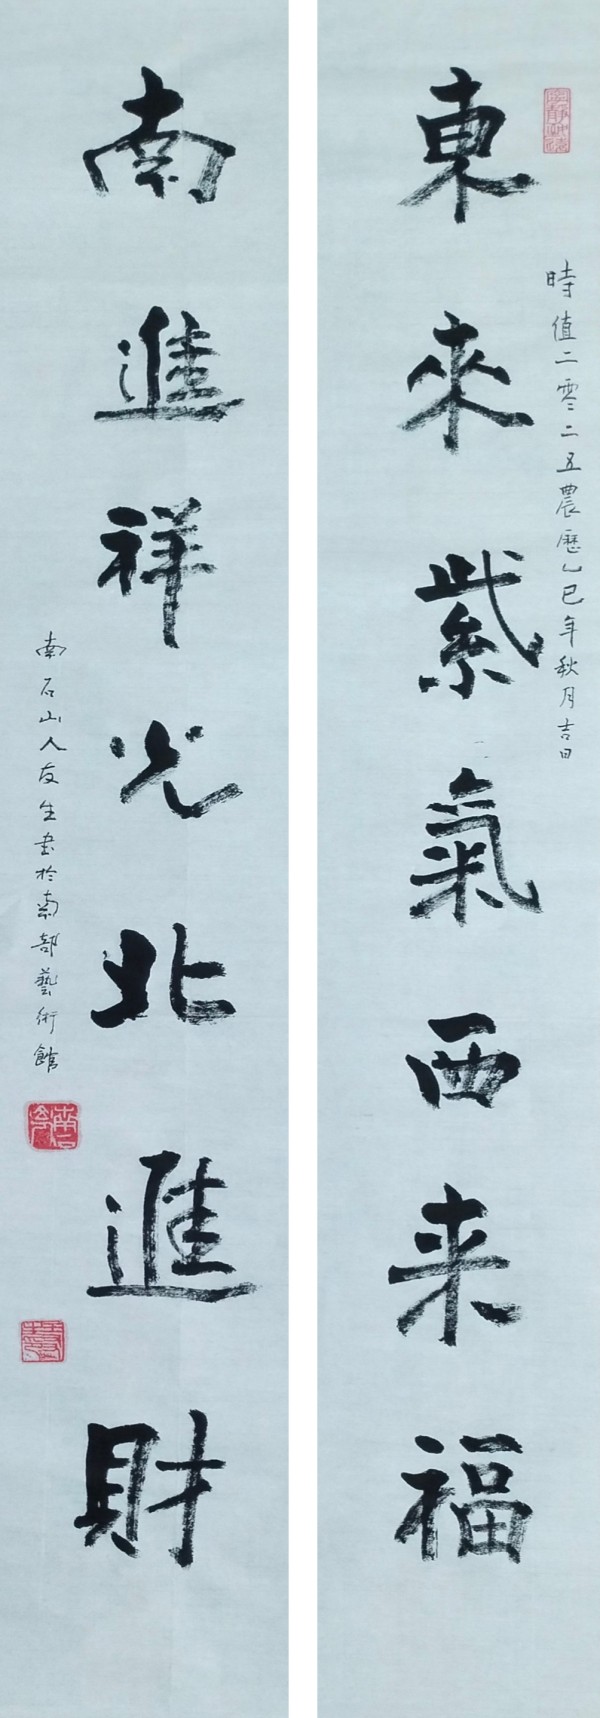 東來紫氣西来福
時值二零二五農歷乙巳年秋月吉日
南進祥光北進財
南石山人友生書於南部藝術館